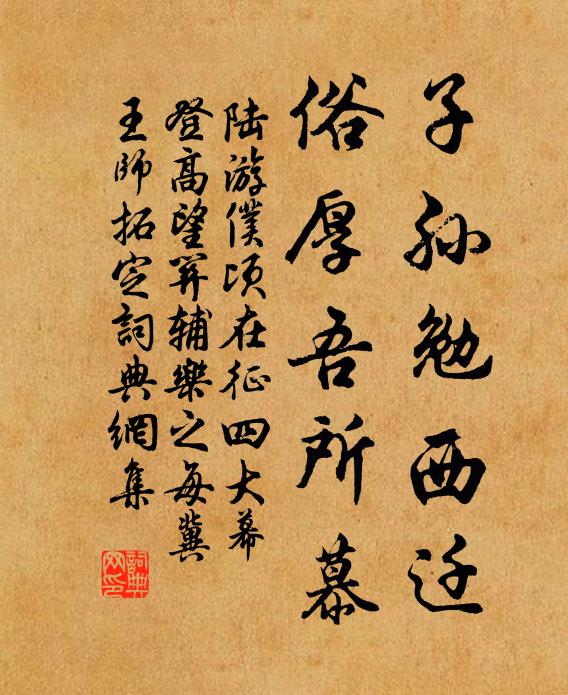 子孙勉西迁
俗厚吾所慕
陆游僕顷在征四大幕
登高望关辅樂之每冀
王師拓定詞典網集
詞典网印